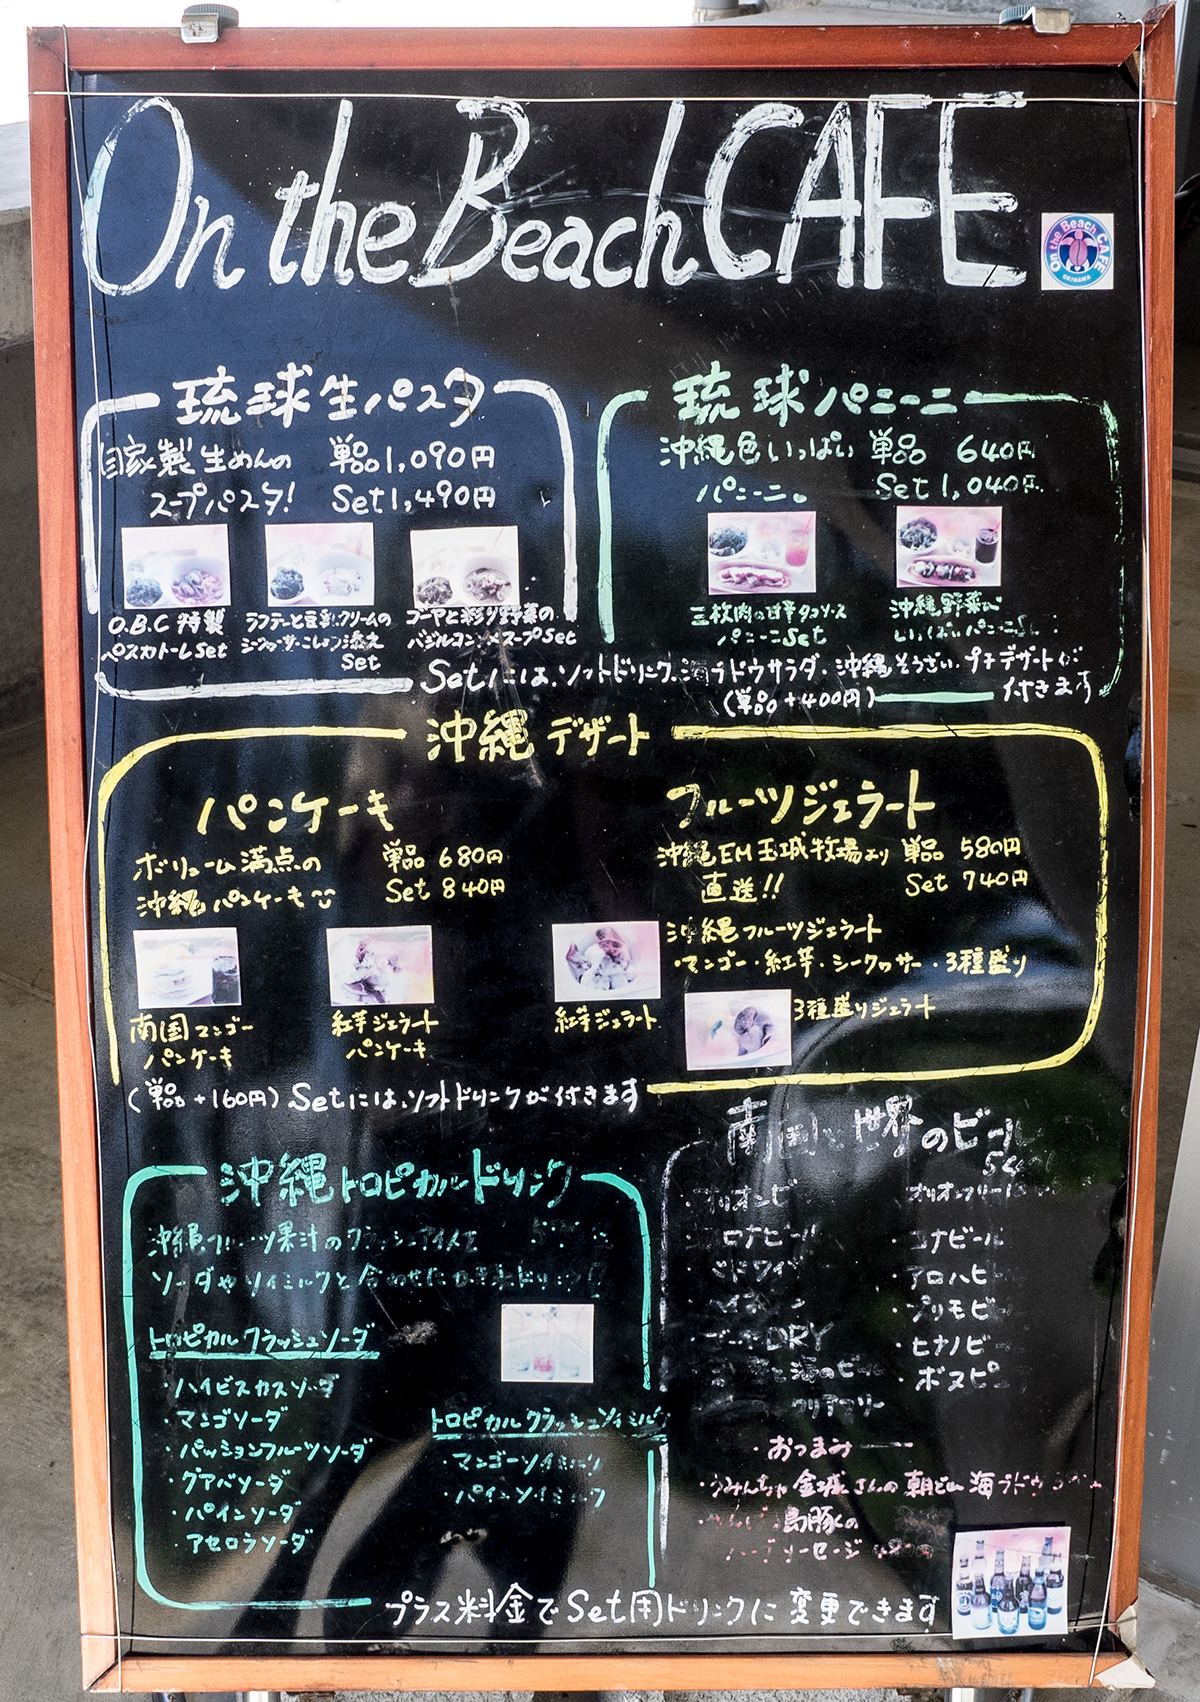 On the Beach CAFE
On the Beach CAFE
OKINAWA
琉球生パスタ
自家製生めんの 単品1,090円
スープパスタ! Set1,490円
O.B.C 特製
ペスカトーレSet
ラフテーと豆乳クリームの
Set
ゴーヤと彩り野菜の
スープSet
琉球パニーニ
沖縄色いっぱい 単品 640円
パニーニ。 Set 1,040円
三枚肉の甘辛タコソース
パニーニSet
沖縄野菜
いっぱいパニーニ
Setには、ソフトドリンク、海ブドウサラダ、沖縄そうざい、プチデザートが
(単品+400円) 付きます
沖縄デザート
パンケーキ
ボリューム満点の 単品 680円
沖縄パンケーキ Set 840円
南国マンゴー
パンケーキ
紅芋ジェラート
パンケーキ
フルーツジェラート
沖縄EM玉城牧場より 単品 580円
直送!! Set 740円
沖縄フルーツジェラート
・マンゴー・紅芋・シークヮサー・3種盛り
紅芋ジェラート
3種盛りジェラート
(単品+160円) Setには、ソフトドリンクが付きます
沖縄トロピカルドリンク
沖縄フルーツ果汁のクラッシュアイスを
ソーダやソイミルクと合わせた
トロピカルクラッシュソーダ
・ハイビスカスソーダ
・マンゴソーダ
・パッションフルーツソーダ
・グアバソーダ
・パインソーダ
・アセロラソーダ
トロピカルクラッシュソイミルク
・マンゴーソイミルク
・パインソイミルク
南国と世界のビール
オリオンビ
コロナビール
DRY
と海のビール
オリオンフリー
・コナビール
・アロハビ
・プリモビー
・ヒナノビー
・ボヌビ
・おつまみ
・うみんちゅ金城さんの朝どれ海ブドウ
島豚の
ソーセージ
プラス料金でSet用ドリンクに変更できます